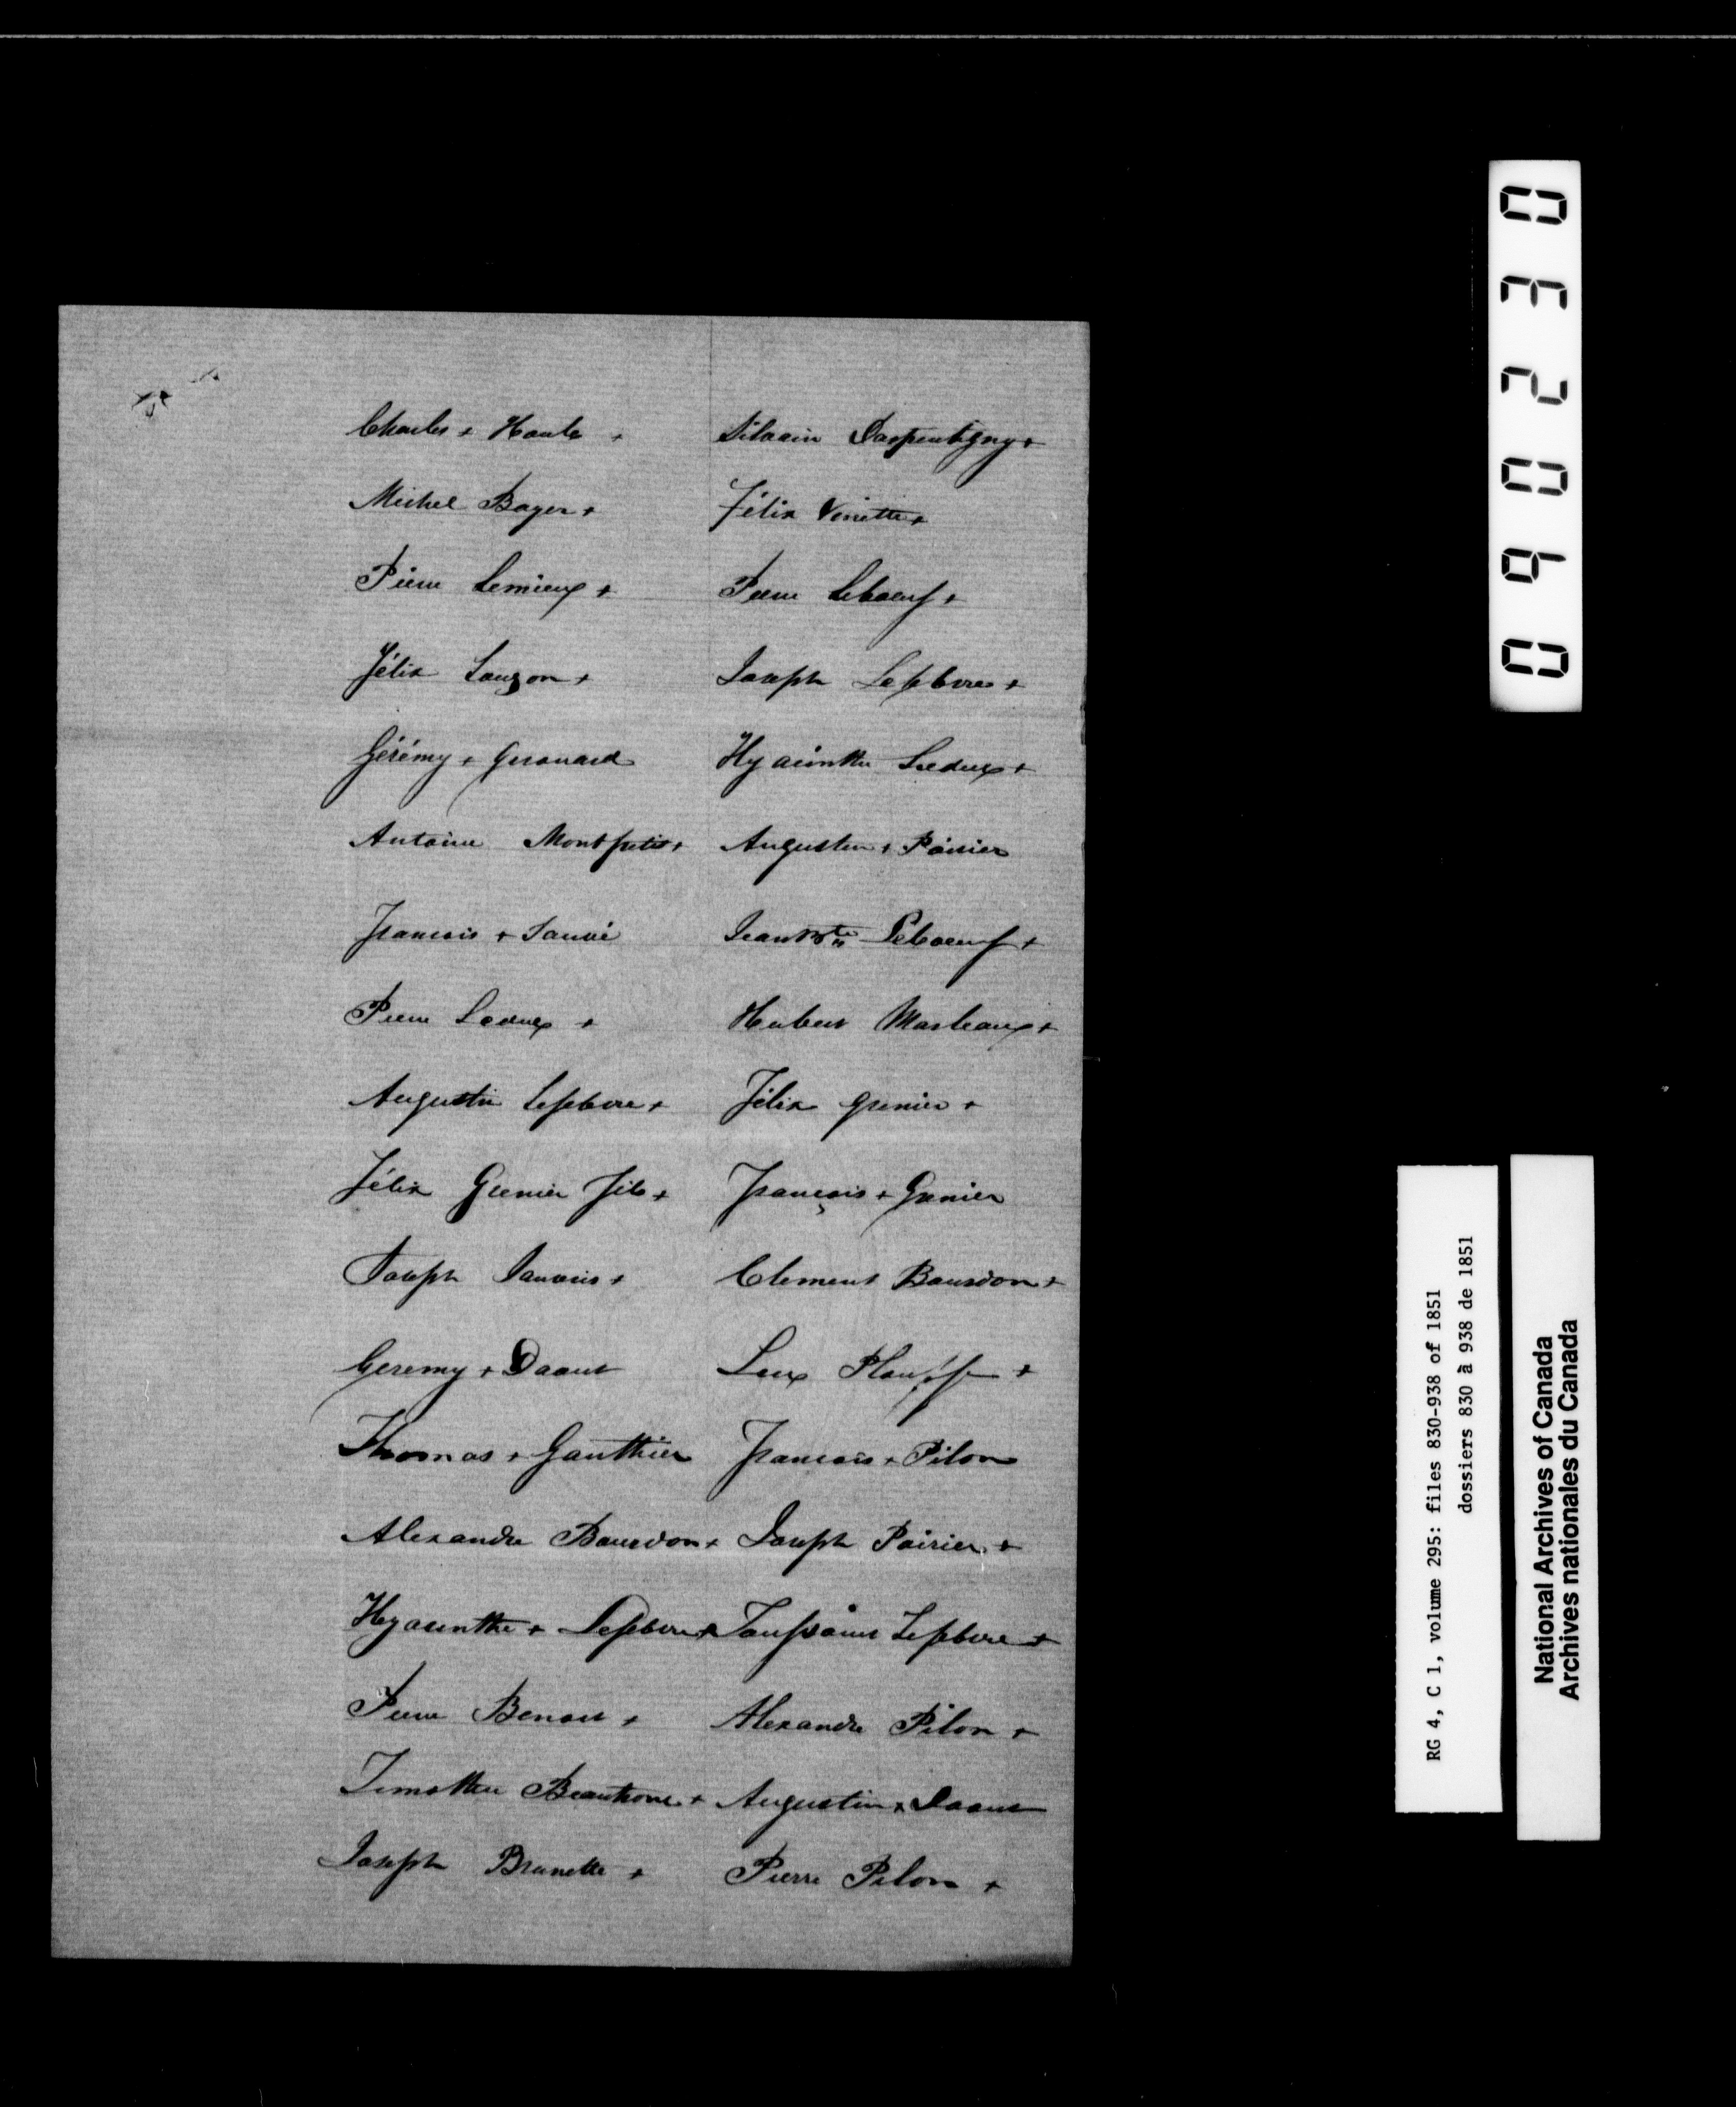 Charles + Haule + Silvain Darpentigny +
Michel Boyer + Félix Vinette +
Pierre Lemieux + Pierre Leboeuf +
Félix Lauzon + Joseph Lefebvre +
Gérémy + Gerouard Hyacinthe Leduc +
Antoine Montpetit + Augustin + Poirier
Francois + Sauvé Jean Bte Leboeuf +
Pierre Leduc + Hubert Marleaux +
Augustin Lefebvre + Félix Grenier +
Félix Grenier fils + François + Grenier
Joseph + Clement Bourdon +
Geremy + Daout Luc Plouffe +
Thomas + Gauthier Francois + Pilon
Alexandre Bourdon + Joseph Poirier +
Hyacinthe + Lefebvre + Toussaint Lefebvre +
Pierre Benoit + Alexandre Pilon +
Timothée + Augustin + Daout
Joseph Brunette + Pierre Pilon +
090230
RG 4, C 1, volume 295: files 830-938 of 1851
dossiers 830 à 938 de 1851
National Archives of Canada
Archives nationales du Canada